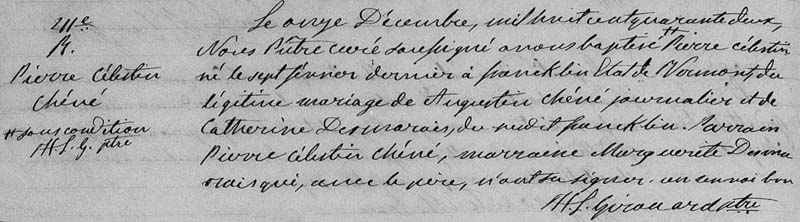 211e.
B.
Pierre Célestin
Chéné
# sous condition
H. L. G. ptre
Le onze Décembre, mil huit cent quarante deux,
Nous Prêtre curé soussigné avons baptisé # Pierre Célestin
né le sept février dernier à francklin Etat de Vermont, du
légitime mariage de Augustin Chéné journalier et de
Catherine Desmarais, du susdit francklin. Parrain
Pierre Célestin Chéné, marraine Marguerite Desma
rais qui, avec le père, n'ont su signer. un renvoi bon
H. L. Girouard ptre